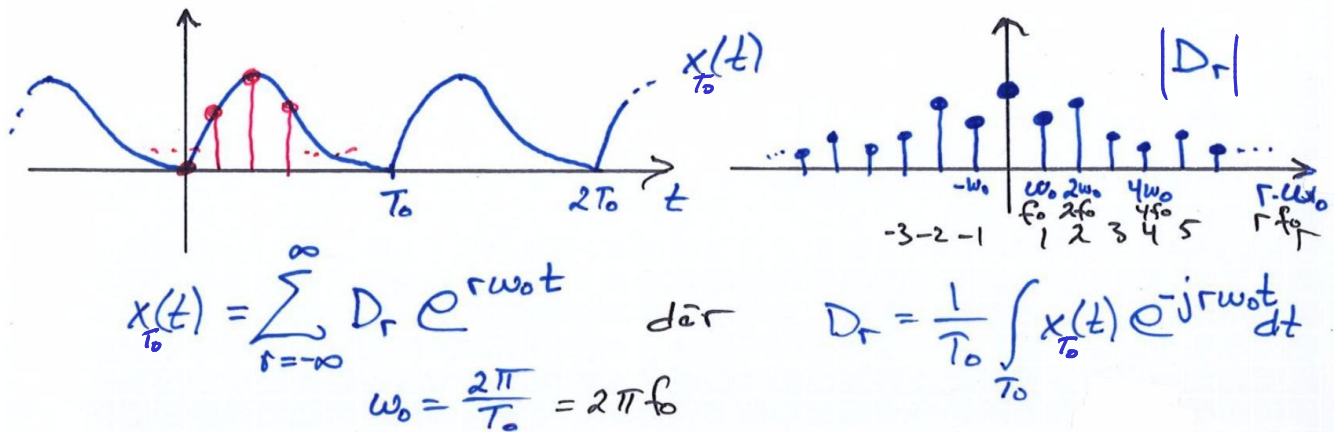 x_{T₀}(t)
|Dᵣ|
T₀ 2T₀ t
-ω₀ ω₀ 2ω₀ 4ω₀ r·ω₀
f₀ 2f₀ 4f₀ r f₀
-3 -2 -1 1 2 3 4 5 r
x_{T₀}(t) = ∑_{r=-∞}^{∞} Dᵣ e^{rω₀t} där Dᵣ = 1/T₀ ∫_{T₀} x_{T₀}(t) e^{-jrω₀t} dt
ω₀ = 2π/T₀ = 2πf₀